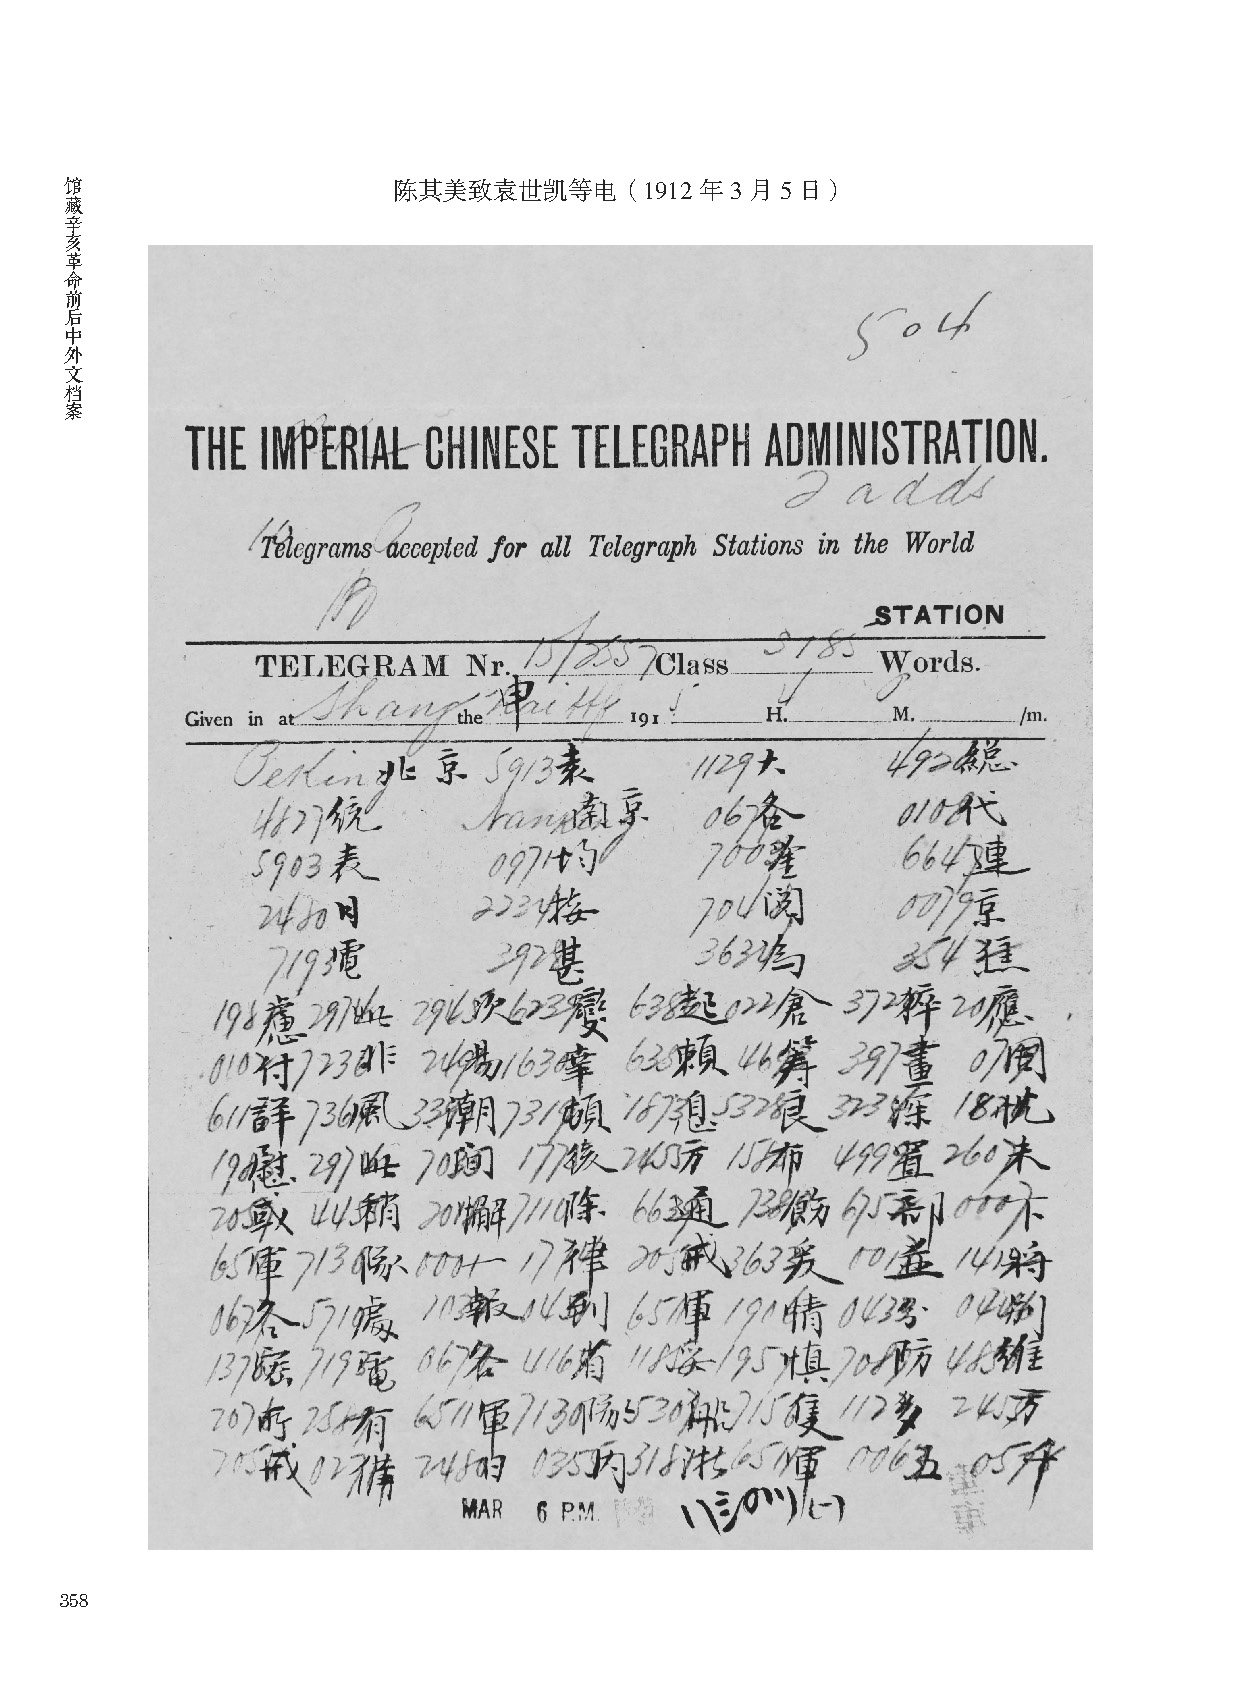 馆藏辛亥革命前后中外文档案
陈其美致袁世凯等电（1912年3月5日）
504
THE IMPERIAL CHINESE TELEGRAPH ADMINISTRATION.
2 adds
Telegrams accepted for all Telegraph Stations in the World
STATION
TELEGRAM Nr. 15/2557 Class 3185 Words.
Given in at Shanghai the 申 191 H. M. /m.
Peking 北京 5913袁 1129大 492總
4827統 南京 067各 0108代
5903表 0971均 700鑒 6647連
2480日 2234接 704閱 0079京
7193電 392甚 363為 354焦
198慮 297此 2945次 6239變 638起 022倉 372猝 20應
010付 723非 249易 1630幸 635賴 469籌 397畫 07周
611詳 736風 33潮 7319頓 1873息 5328良 323深 18忱
198慰 297此 70間 177後 2455方 158布 499置 260未
205或 445稍 20懈 7110除 663通 738飭 675部 0007下
651軍 713隊 0001一 17律 205戒 363爰 001並 141將
067各 571處 103報 045到 651軍 190情 0433分 044別
137密 719電 067各 416省 118妥 195慎 708防 485維
207所 258有 6511軍 713隊 530船 715隻 112多 2455方
205戒 02備 2480日 0355內 318淞 651軍 0063五
MAR 6 P.M.
358